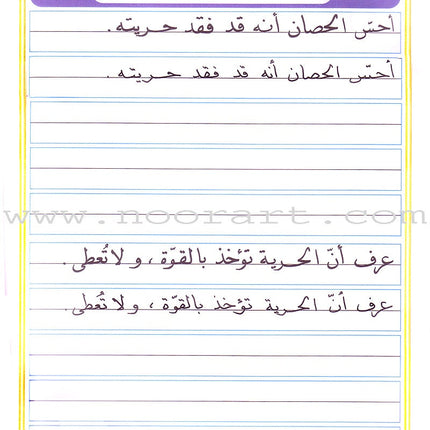 أحسّ الحصان أنه قد فقد حريته.
أحسّ الحصان أنه قد فقد حريته.
www.noorart.com
عرف أنّ الحرية تؤخذ بالقوّة، و لا تُعطى.
عرف أنّ الحرية تؤخذ بالقوّة، و لا تُعطى.